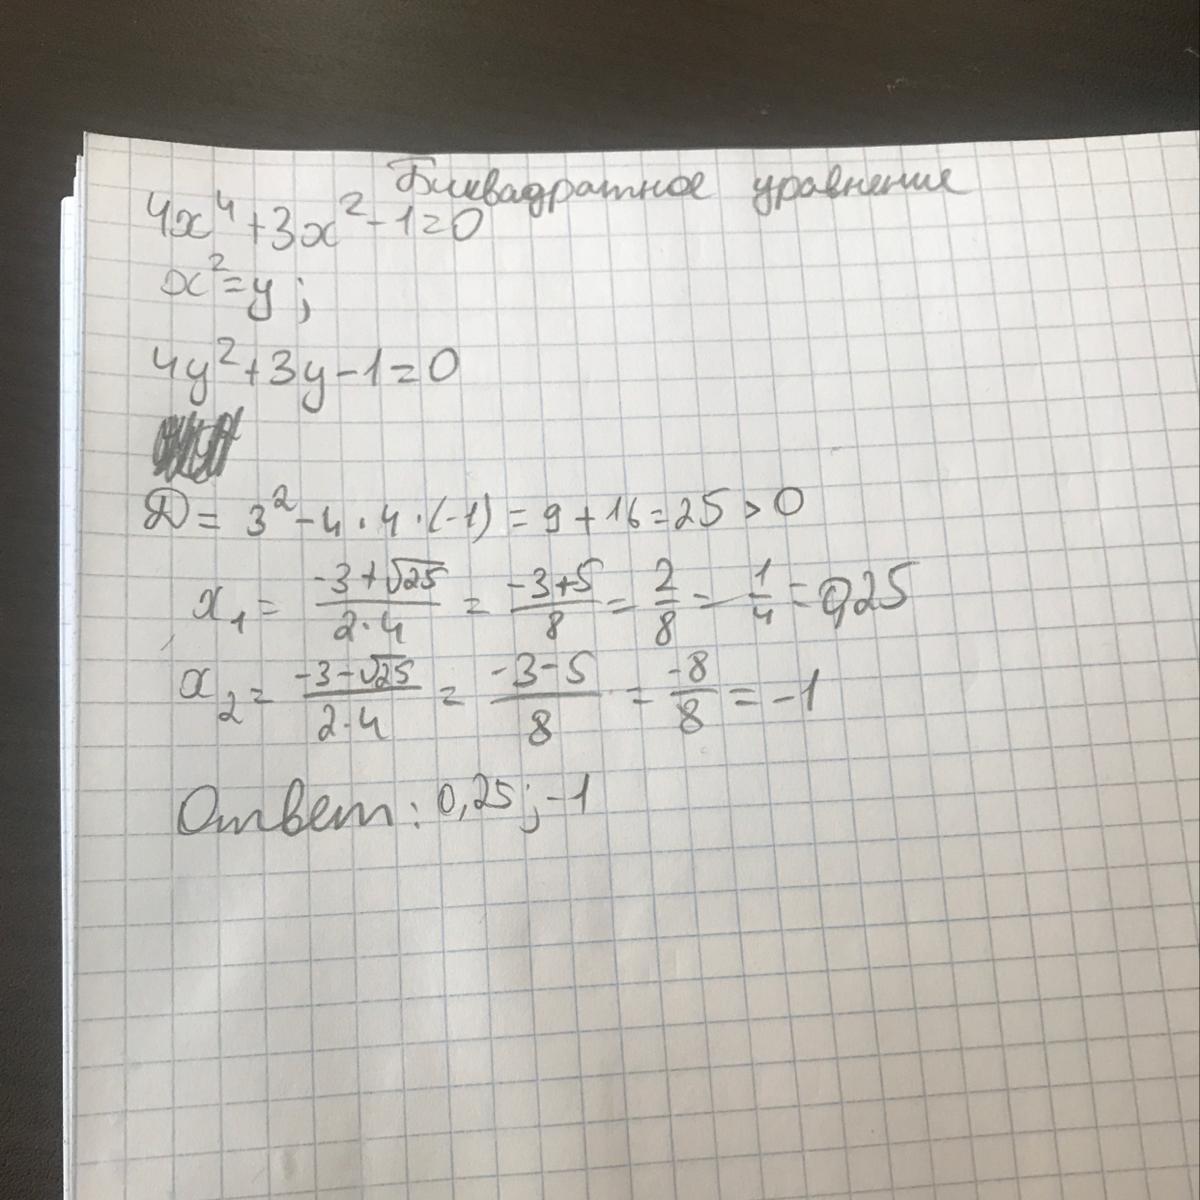 Биквадратное уравнение
4x⁴+3x²-1=0
x²=y;
4y²+3y-1=0
D = 3²-4·4·(-1) = 9+16=25>0
x₁= (-3+√25)/(2·4) = (-3+5)/8 = 2/8 = 1/4 = 0,25
x₂= (-3-√25)/(2·4) = (-3-5)/8 = -8/8 = -1
Ответ: 0,25; -1